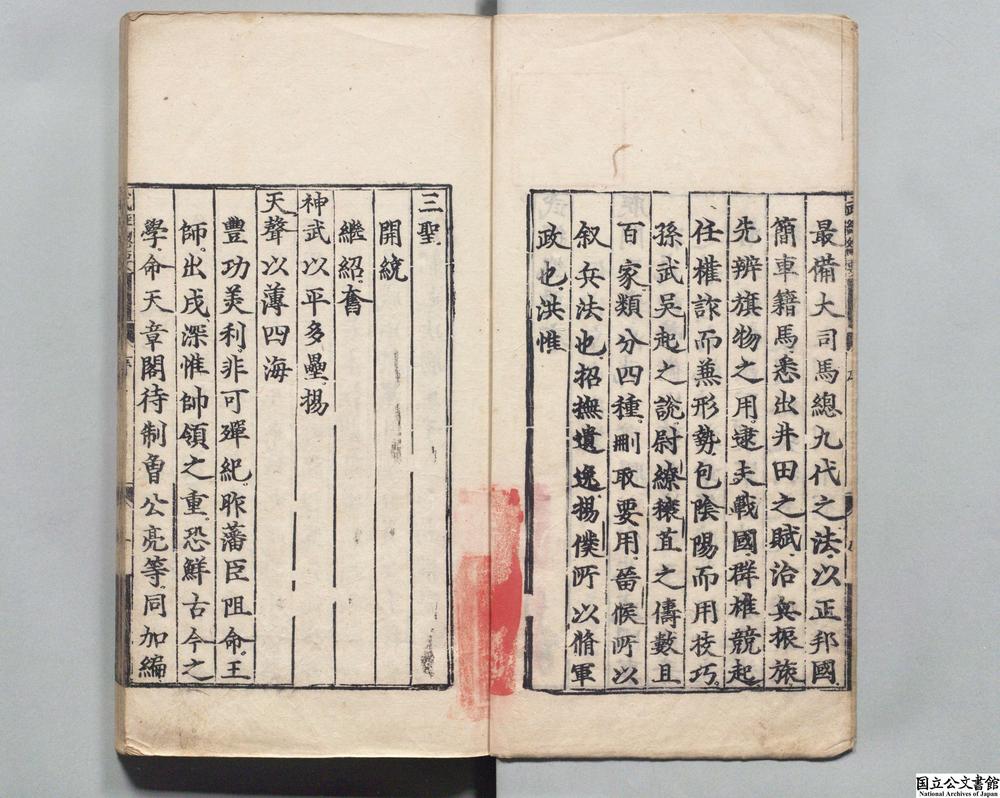 最備大司馬總九代之法以正邦國
簡車籍馬悉出井田之賦治兵振旅
先辨旗物之用逮夫戰國群雄競起
任權詐而兼形勢包陰陽而用技巧
孫武吳起之說尉繚穰苴之儔數且
百家類分四種刪取要用留侯所以
叙兵法也招撫遺逸楊僕所以脩軍
政也洪惟
三聖
開統
繼紹奮
神武以平多壘揚
天聲以薄四海
豐功美利非可殫紀昨藩臣阻命王
師出戍深惟帥領之重恐鮮古今之
學命天章閣待制曾公亮等同加編
国立公文書館
National Archives of Japan